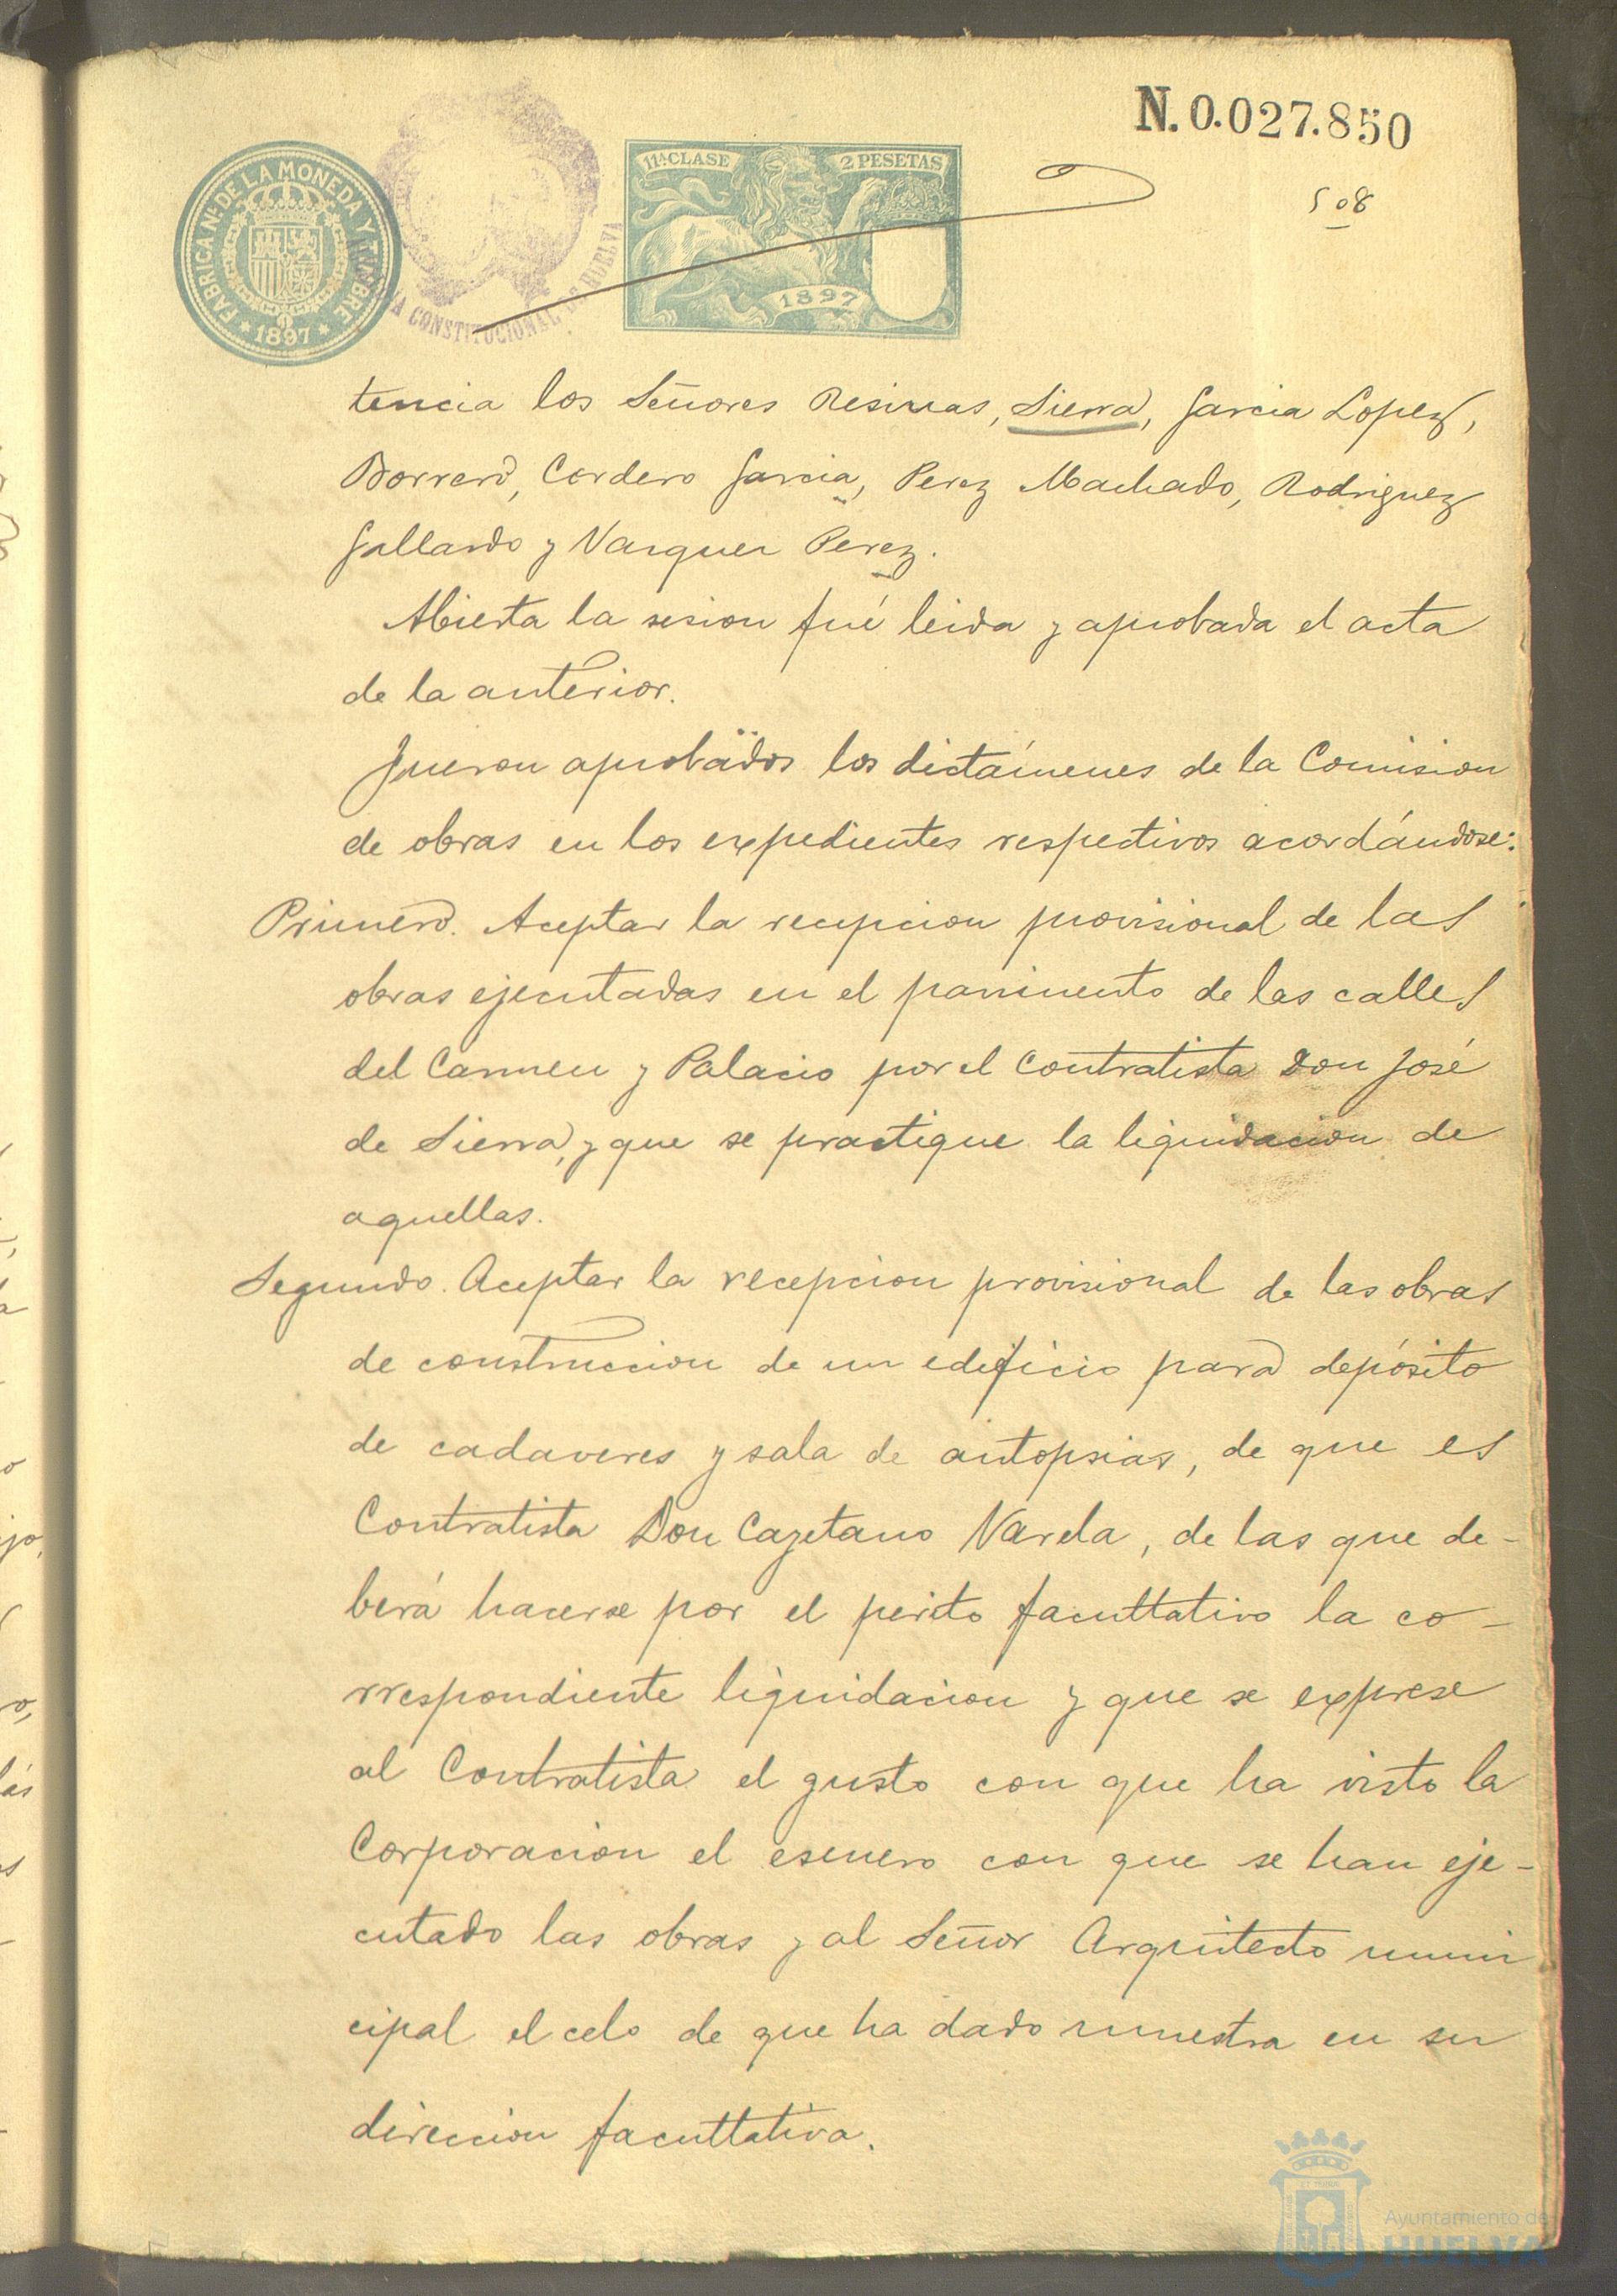 N. 0.027.850
508
FABRICA Nal. DE LA MONEDA Y TIMBRE
* 1897 *
CONSTITUCIONAL DE HUELVA
11ª CLASE 2 PESETAS
1897
tencia los Señores Resinas, Sierra, Garcia Lopez,
Borrero, Cordero Garcia, Perez Machado, Rodriguez
Gallardo y Vazquez Perez.
Abierta la sesion fué leida y aprobada el acta
de la anterior.
Fueron aprobados los dictámenes de la Comision
de obras en los expedientes respectivos acordándose:
Primero. Aceptar la recepcion provisional de las
obras ejecutadas en el pavimento de las calles
del Carmen y Palacio por el Contratista Don José
de Sierra, y que se practique la liquidacion de
aquellas.
Segundo. Aceptar la recepcion provisional de las obras
de construccion de un edificio para depósito
de cadaveres y sala de autopsias, de que es
Contratista Don Cayetano Varela, de las que de-
berá hacerse por el perito facultativo la co-
rrespondiente liquidacion y que se exprese
al Contratista el gusto con que ha visto la
Corporacion el esmero con que se han eje-
cutado las obras y al Señor Arquitecto muni
cipal el celo de que ha dado muestra en su
direccion facultativa.
Ayuntamiento de
HUELVA